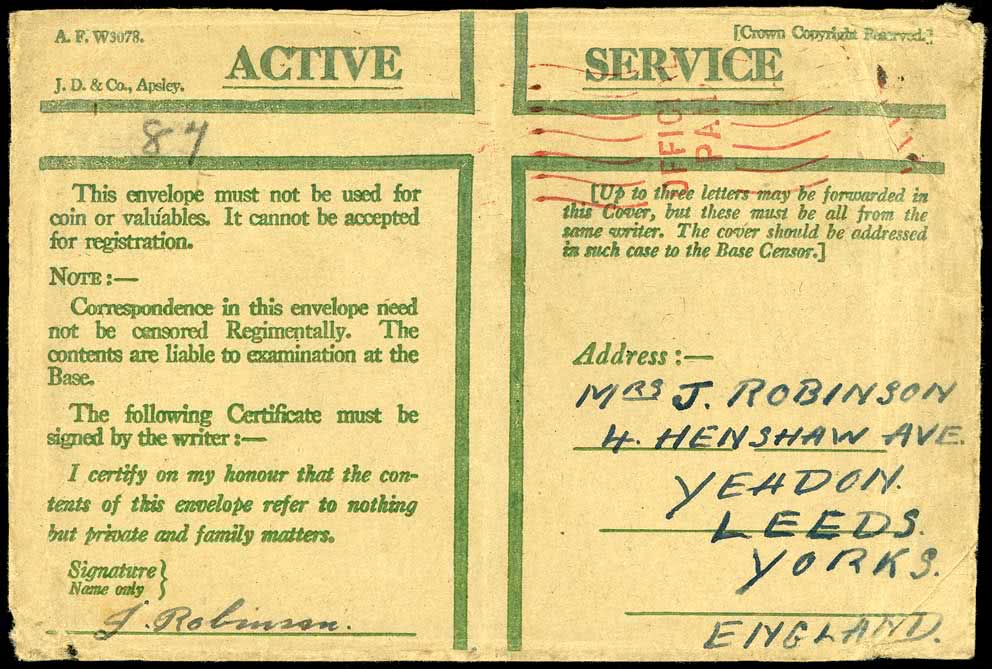 A. F. W3078.
[Crown Copyright Reserved.]
ACTIVE SERVICE
J. D. & Co., Apsley.
87
OFFICI
PAI
This envelope must not be used for
coin or valuables. It cannot be accepted
for registration.
NOTE :—
Correspondence in this envelope need
not be censored Regimentally. The
contents are liable to examination at the
Base.
The following Certificate must be
signed by the writer :—
I certify on my honour that the con-
tents of this envelope refer to nothing
but private and family matters.
Signature }
Name only
J. Robinson.
[Up to three letters may be forwarded in
this Cover, but these must be all from the
same writer. The cover should be addressed
in such case to the Base Censor.]
Address :—
MRS J. ROBINSON
4. HENSHAW AVE.
YEADON.
LEEDS.
YORKS.
ENGLAND.